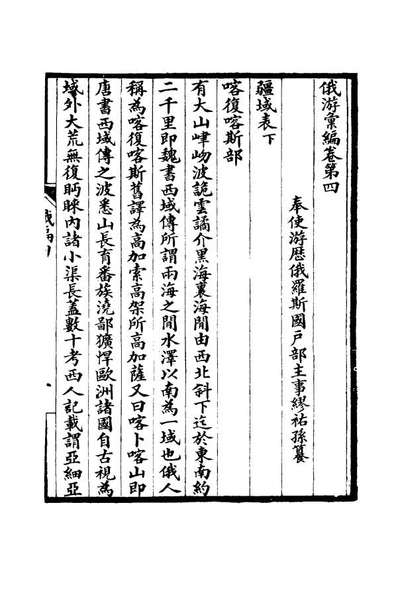 俄游彙編卷第四
奉使游歷俄羅斯國戶部主事繆祐孫纂
疆域表下
喀復喀斯部
有大山峍岉波詭雲譎介黑海裏海間由西北斜下迄於東南約
二千里即魏書西域傳所謂兩海之間水澤以南為一域也俄人
稱為喀復喀斯舊譯為高加索高架所高加薩又曰喀卜喀山即
唐書西域傳之波悉山長育番族澆鄙獷悍歐洲諸國自古視為
域外大荒無復眄睞內諸小渠長蓋數十考西人記載謂亞細亞